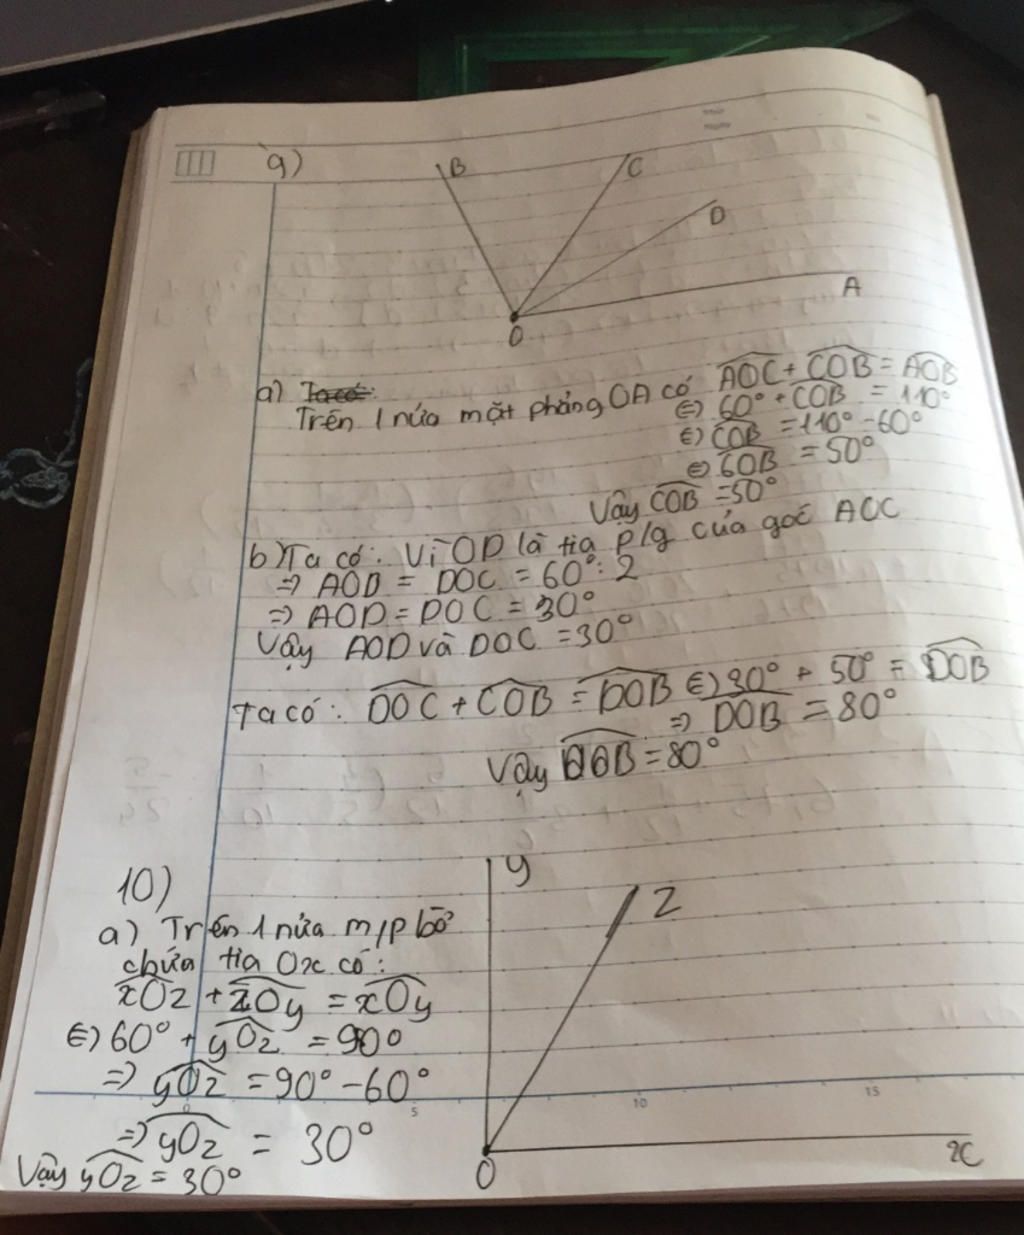 9)
B
C
D
A
O
a) Ta có:
Trên 1 nửa mặt phẳng OA có AOC + COB = AOB
⇔ 60° + COB = 110°
⇔ COB = 110° - 60°
⇔ COB = 50°
Vậy COB = 50°
b) Ta có: Vì OD là tia p/g của góc AOC
⇒ AOD = DOC = 60° : 2
⇒ AOD = DOC = 30°
Vậy AOD và DOC = 30°
Ta có: DOC + COB = DOB ⇔ 30° + 50° = DOB
⇒ DOB = 80°
Vậy DOB = 80°
10)
y
z
a) Trên 1 nửa m/p bờ
chứa tia Ox có:
xOz + zOy = xOy
⇔ 60° + yOz = 90°
⇒ yOz = 90° - 60°
0 5 10 15
⇒ yOz = 30°
Vậy yOz = 30°
O
x